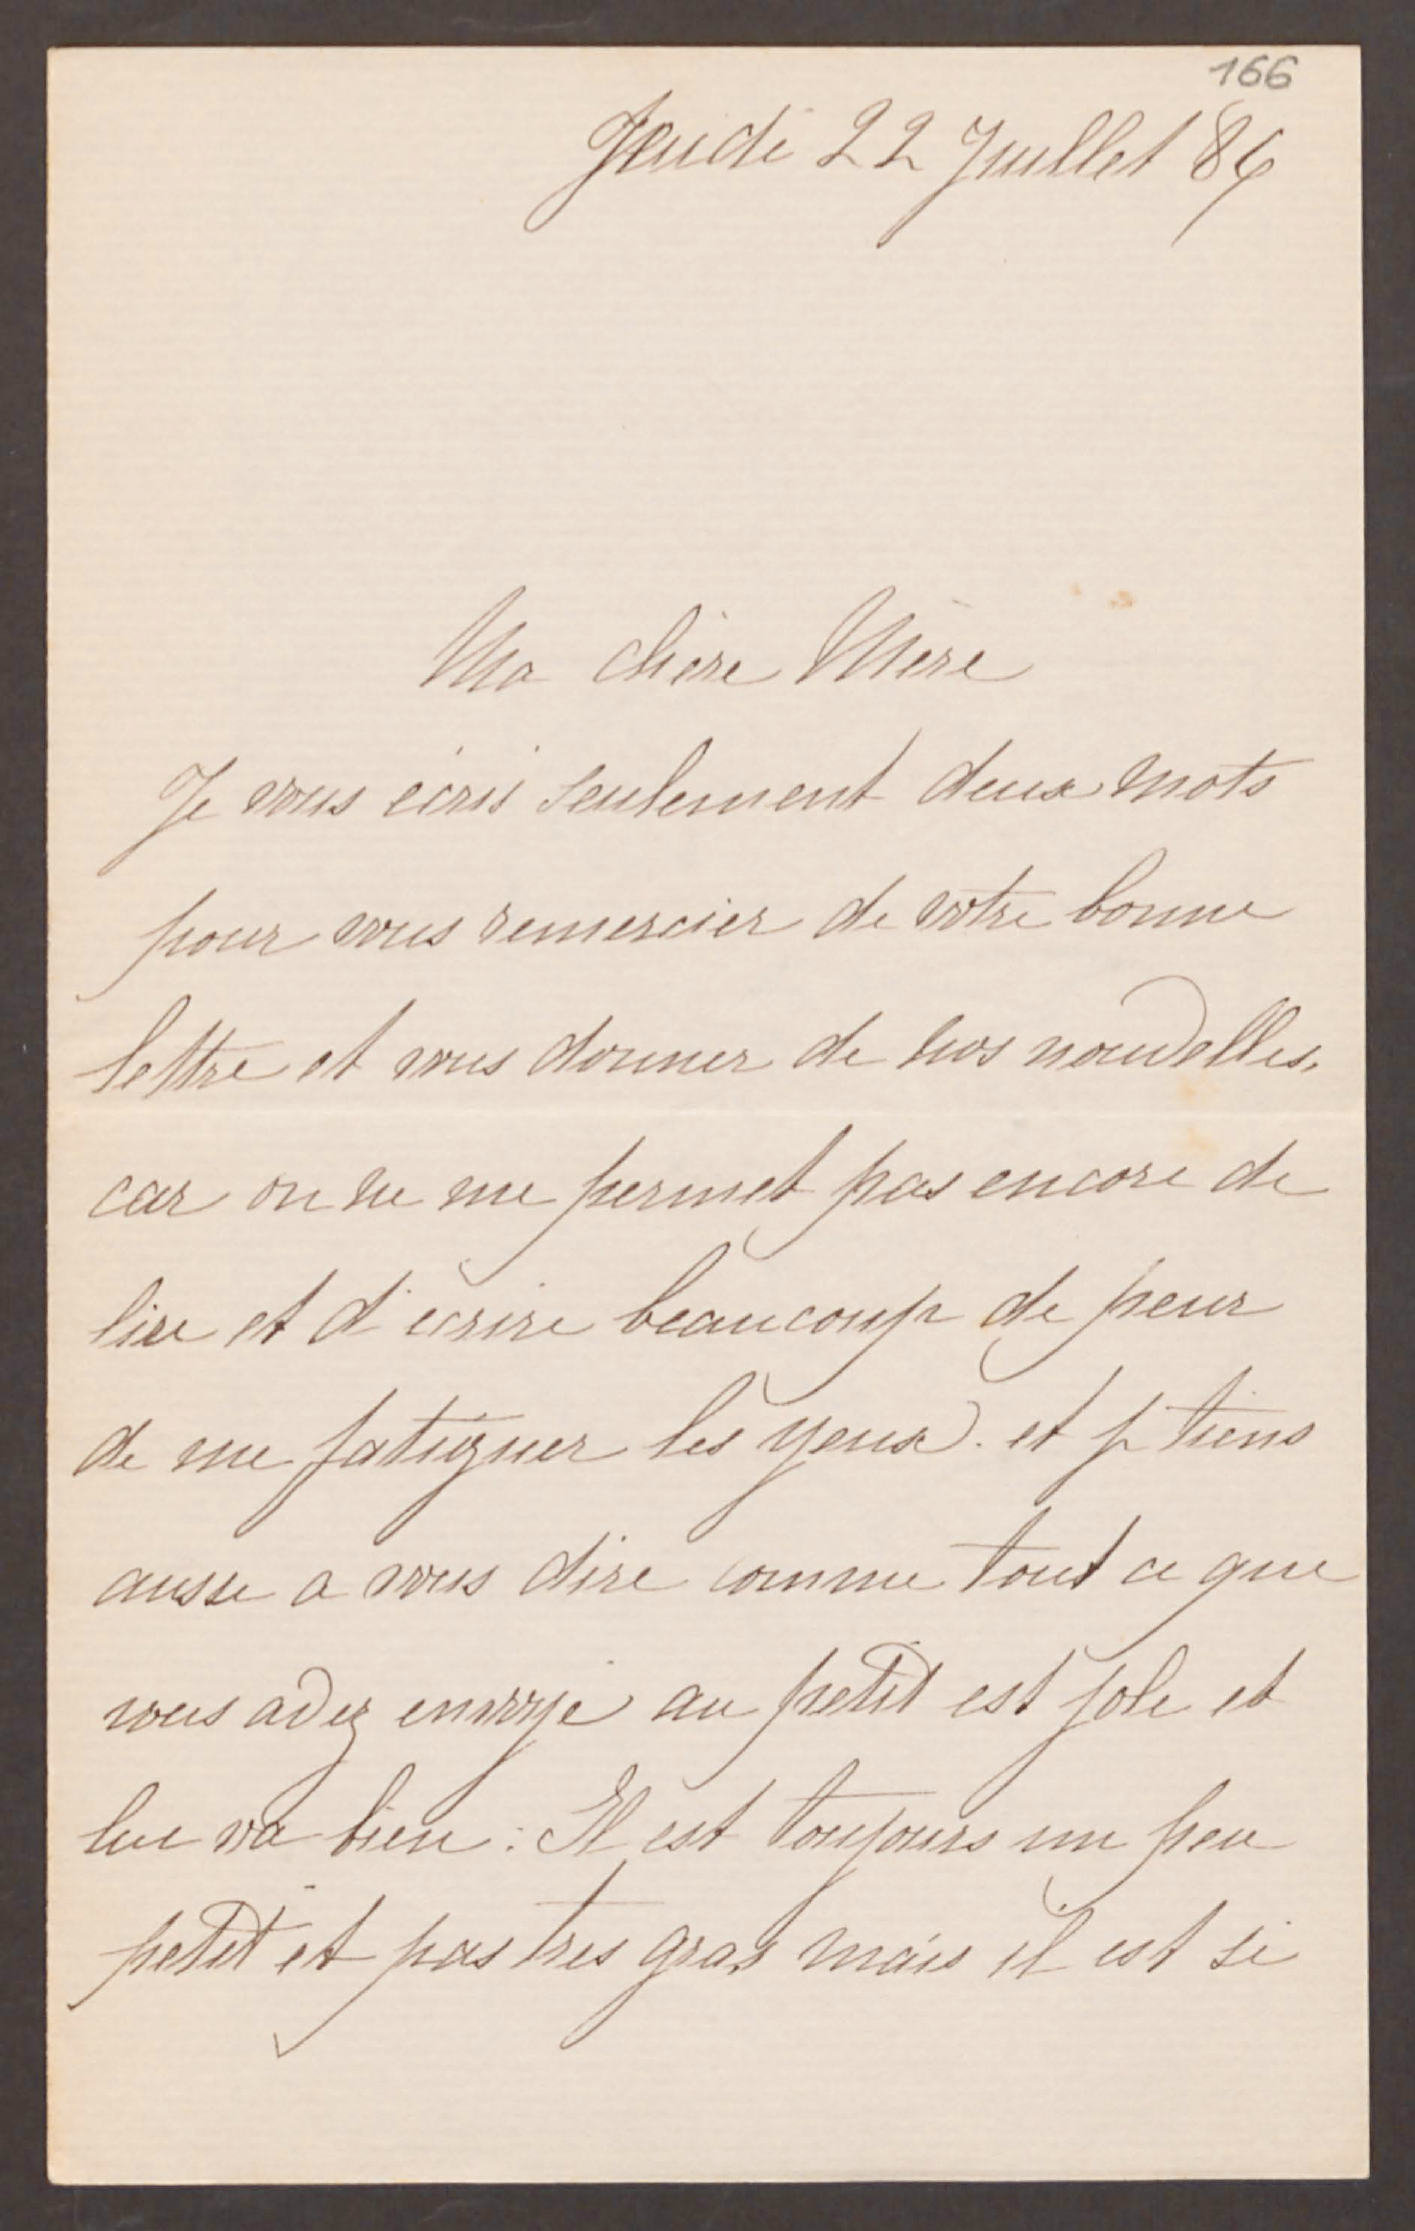 166
Jeudi 22 Juillet 86
Ma chère Mère
Je vous écris seulement deux mots
pour vous remercier de votre bonne
lettre et vous donner de nos nouvelles,
car on ne me permet pas encore de
lire et d'écrire beaucoup de peur
de me fatiguer les yeux. et je tiens
aussi a vous dire comme tout ce que
vous avez envoyé au petit est joli et
lui va bien : Il est toujours un peu
petit et pas tres gras mais il est si